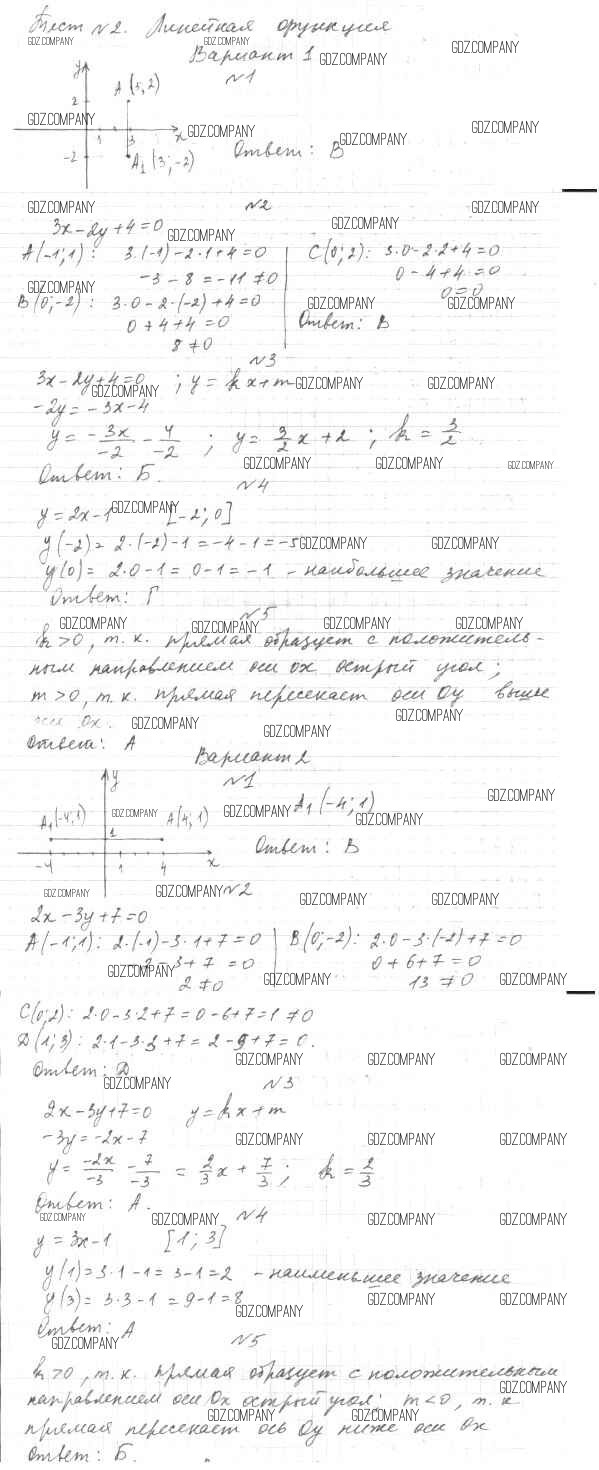 Тест №2. Линейная функция
Вариант 1
№1
y
A (5,2)
2
1 3 x
-2 A₁ (3;-2)
Ответ: В
№2
3x-2y+4=0
A(-1;1): 3·(-1)-2·1+4=0
-3-8=-11≠0
B(0;-2): 3·0-2·(-2)+4=0
0+4+4=0
8≠0
C(0;2): 3·0-2·2+4=0
0-4+4=0
0=0
Ответ: В
№3
3x-2y+4=0 ; y=kx+m
-2y=-3x-4
y=-3x/-2 - 4/-2 ; y=3/2x+2 ; k=3/2
Ответ: Б.
№4
y=2x-1 [-2;0]
y(-2)=2·(-2)-1=-4-1=-5
y(0)=2·0-1=0-1=-1 - наибольшее значение
Ответ: Г
№5
k>0, т.к. прямая образует с положитель-
ным направлением оси ох острый угол;
m>0, т.к. прямая пересекает оси Оу выше
оси Ох.
Ответ: А
Вариант 2
№1
y
A₁(-4;1) 1 A(4;1) A₁(-4;1)
-4 1 4 x
Ответ: В
№2
2x-3y+7=0
A(-1;1): 2·(-1)-3·1+7=0
-2-3+7=0
2≠0
B(0;-2): 2·0-3·(-2)+7=0
0+6+7=0
13≠0
C(0;2): 2·0-3·2+7=0-6+7=1≠0
D(1;3): 2·1-3·3+7=2-9+7=0.
Ответ: D
№3
2x-3y+7=0 y=kx+m
-3y=-2x-7
y=-2x/-3 -7/-3 = 2/3x+7/3; k=2/3
Ответ: А.
№4
y=3x-1 [1;3]
y(1)=3·1-1=3-1=2 - наименьшее значение
y(3)=3·3-1=9-1=8
Ответ: А
№5
k>0, т.к. прямая образует с положительным
направлением оси Ох острый угол; m<0, т.к
прямая пересекает ось Оу ниже оси Ох
Ответ: Б.
GDZ.COMPANY